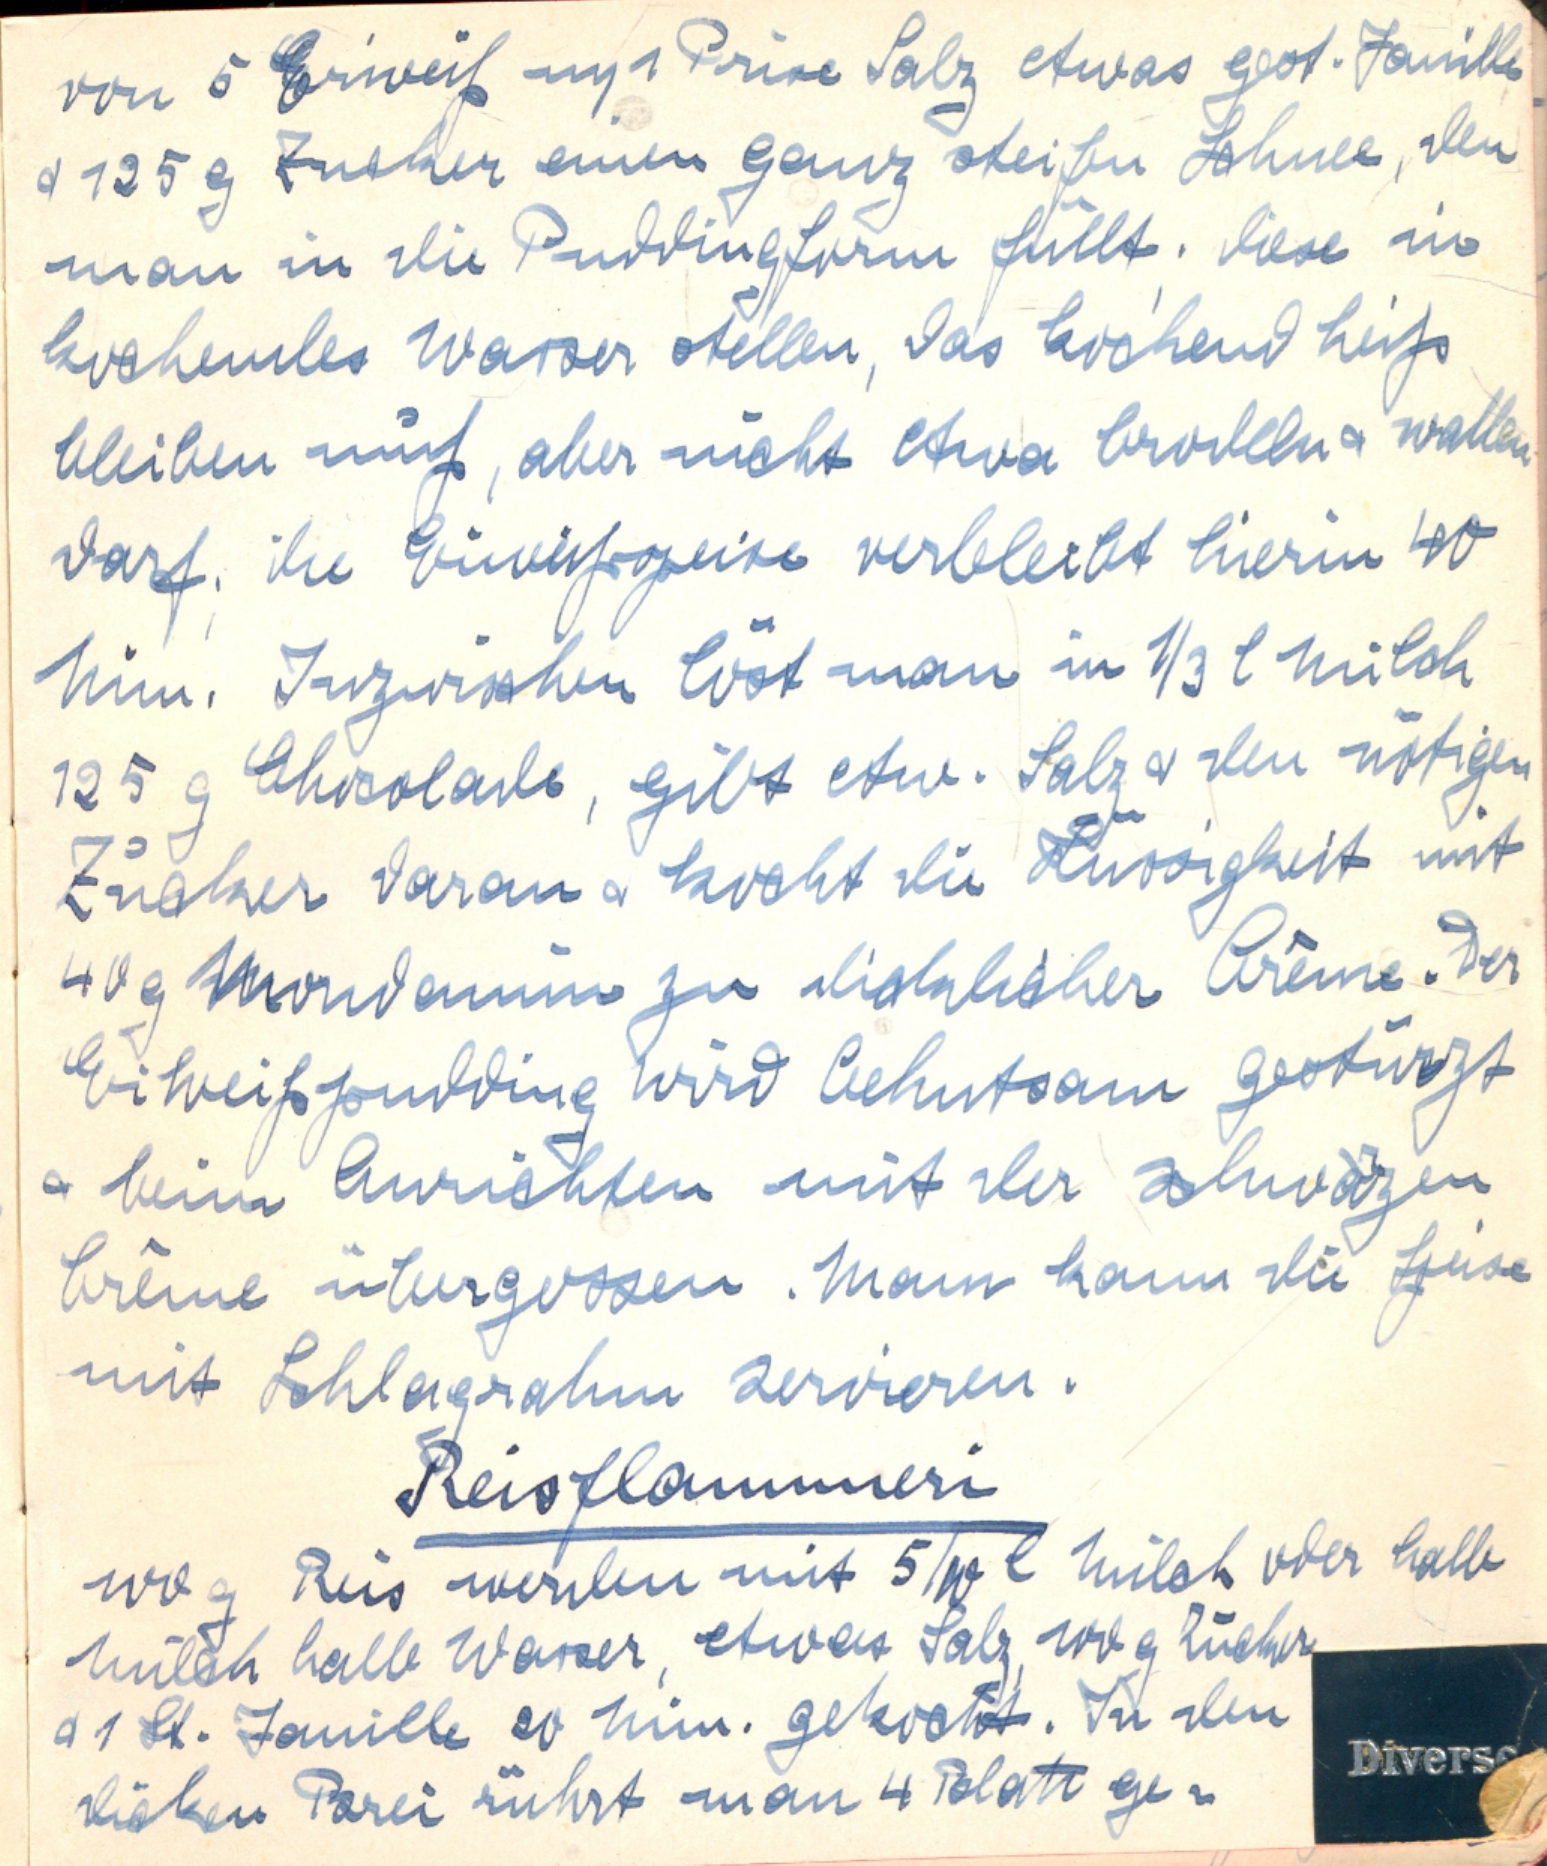 von 5 Eiweiß m/1 Prise Salz etwas gest. Vanille
& 125 g Zucker einen ganz steifen Schnee, den
man in die Puddingform füllt. diese in
kochendes Wasser stellen, das kochend heiß
bleiben muß, aber nicht etwa brodeln & wallen
darf, die Eiweißspeise verbleibt hierin 40
Min. Inzwischen löst man in 1/3 l Milch
125 g Chocolade, gibt etw. Salz & den nötigen
Zucker daran & kocht die Flüssigkeit mit
40 g Mondamin zu dicklicher Crême. Der
Eiweißpudding wird behutsam gestürzt
& beim Anrichten mit der schwarzen
Crême übergossen. Man kann die Speise
mit Schlagrahm servieren.
Reisflammeri
100 g Reis werden mit 5/10 l Milch oder halb
Milch halb Wasser, etwas Salz, 100 g Zucker
& 1 St. Vanille 20 Min. gekocht. In den
dicken Brei rührt man 4 Blatt ge-
Diverse